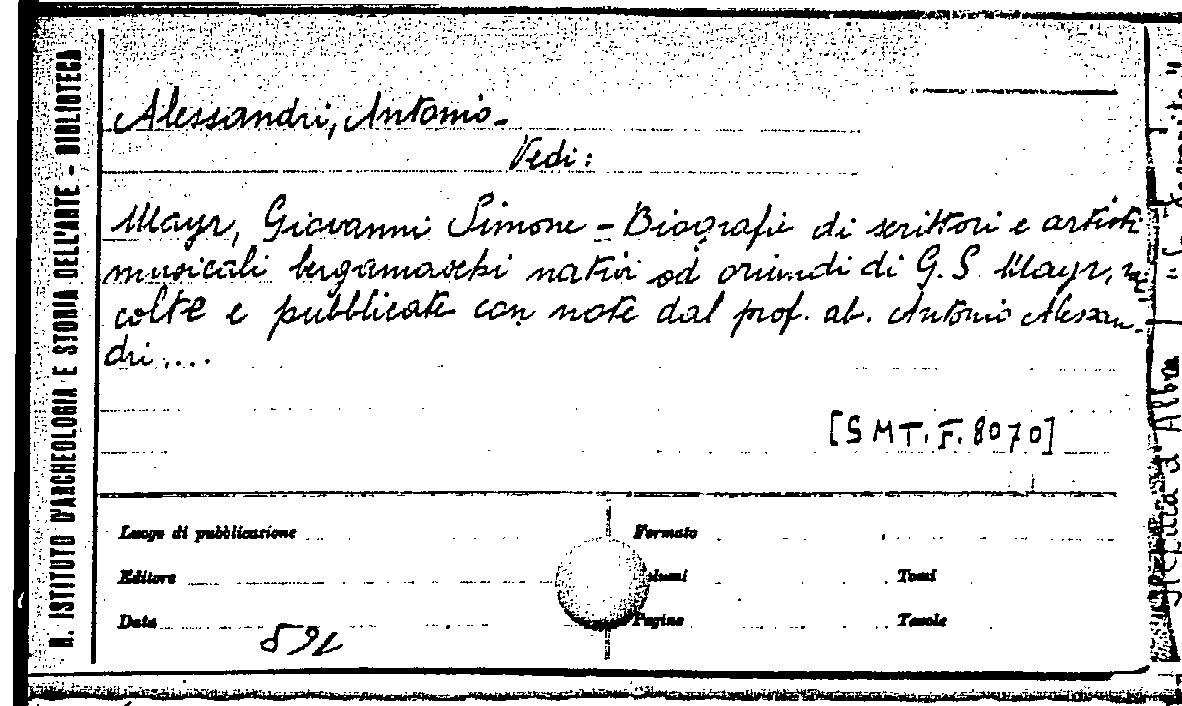 R. ISTITUTO D'ARCHEOLOGIA E STORIA DELL'ARTE - BIBLIOTECA
Alessandri, Antonio -
Vedi:
Mayr, Giovanni Simone - Biografie di scrittori e artisti
musicali bergamaschi nativi od oriundi di G. S. Mayr, rac
colte e pubblicate con note dal prof. ab. Antonio Alessan-
dri....
[SMT. F. 8070]
Luogo di pubblicazione
Formato
Editore
Volumi
Tomi
Data
Pagine
Tavole